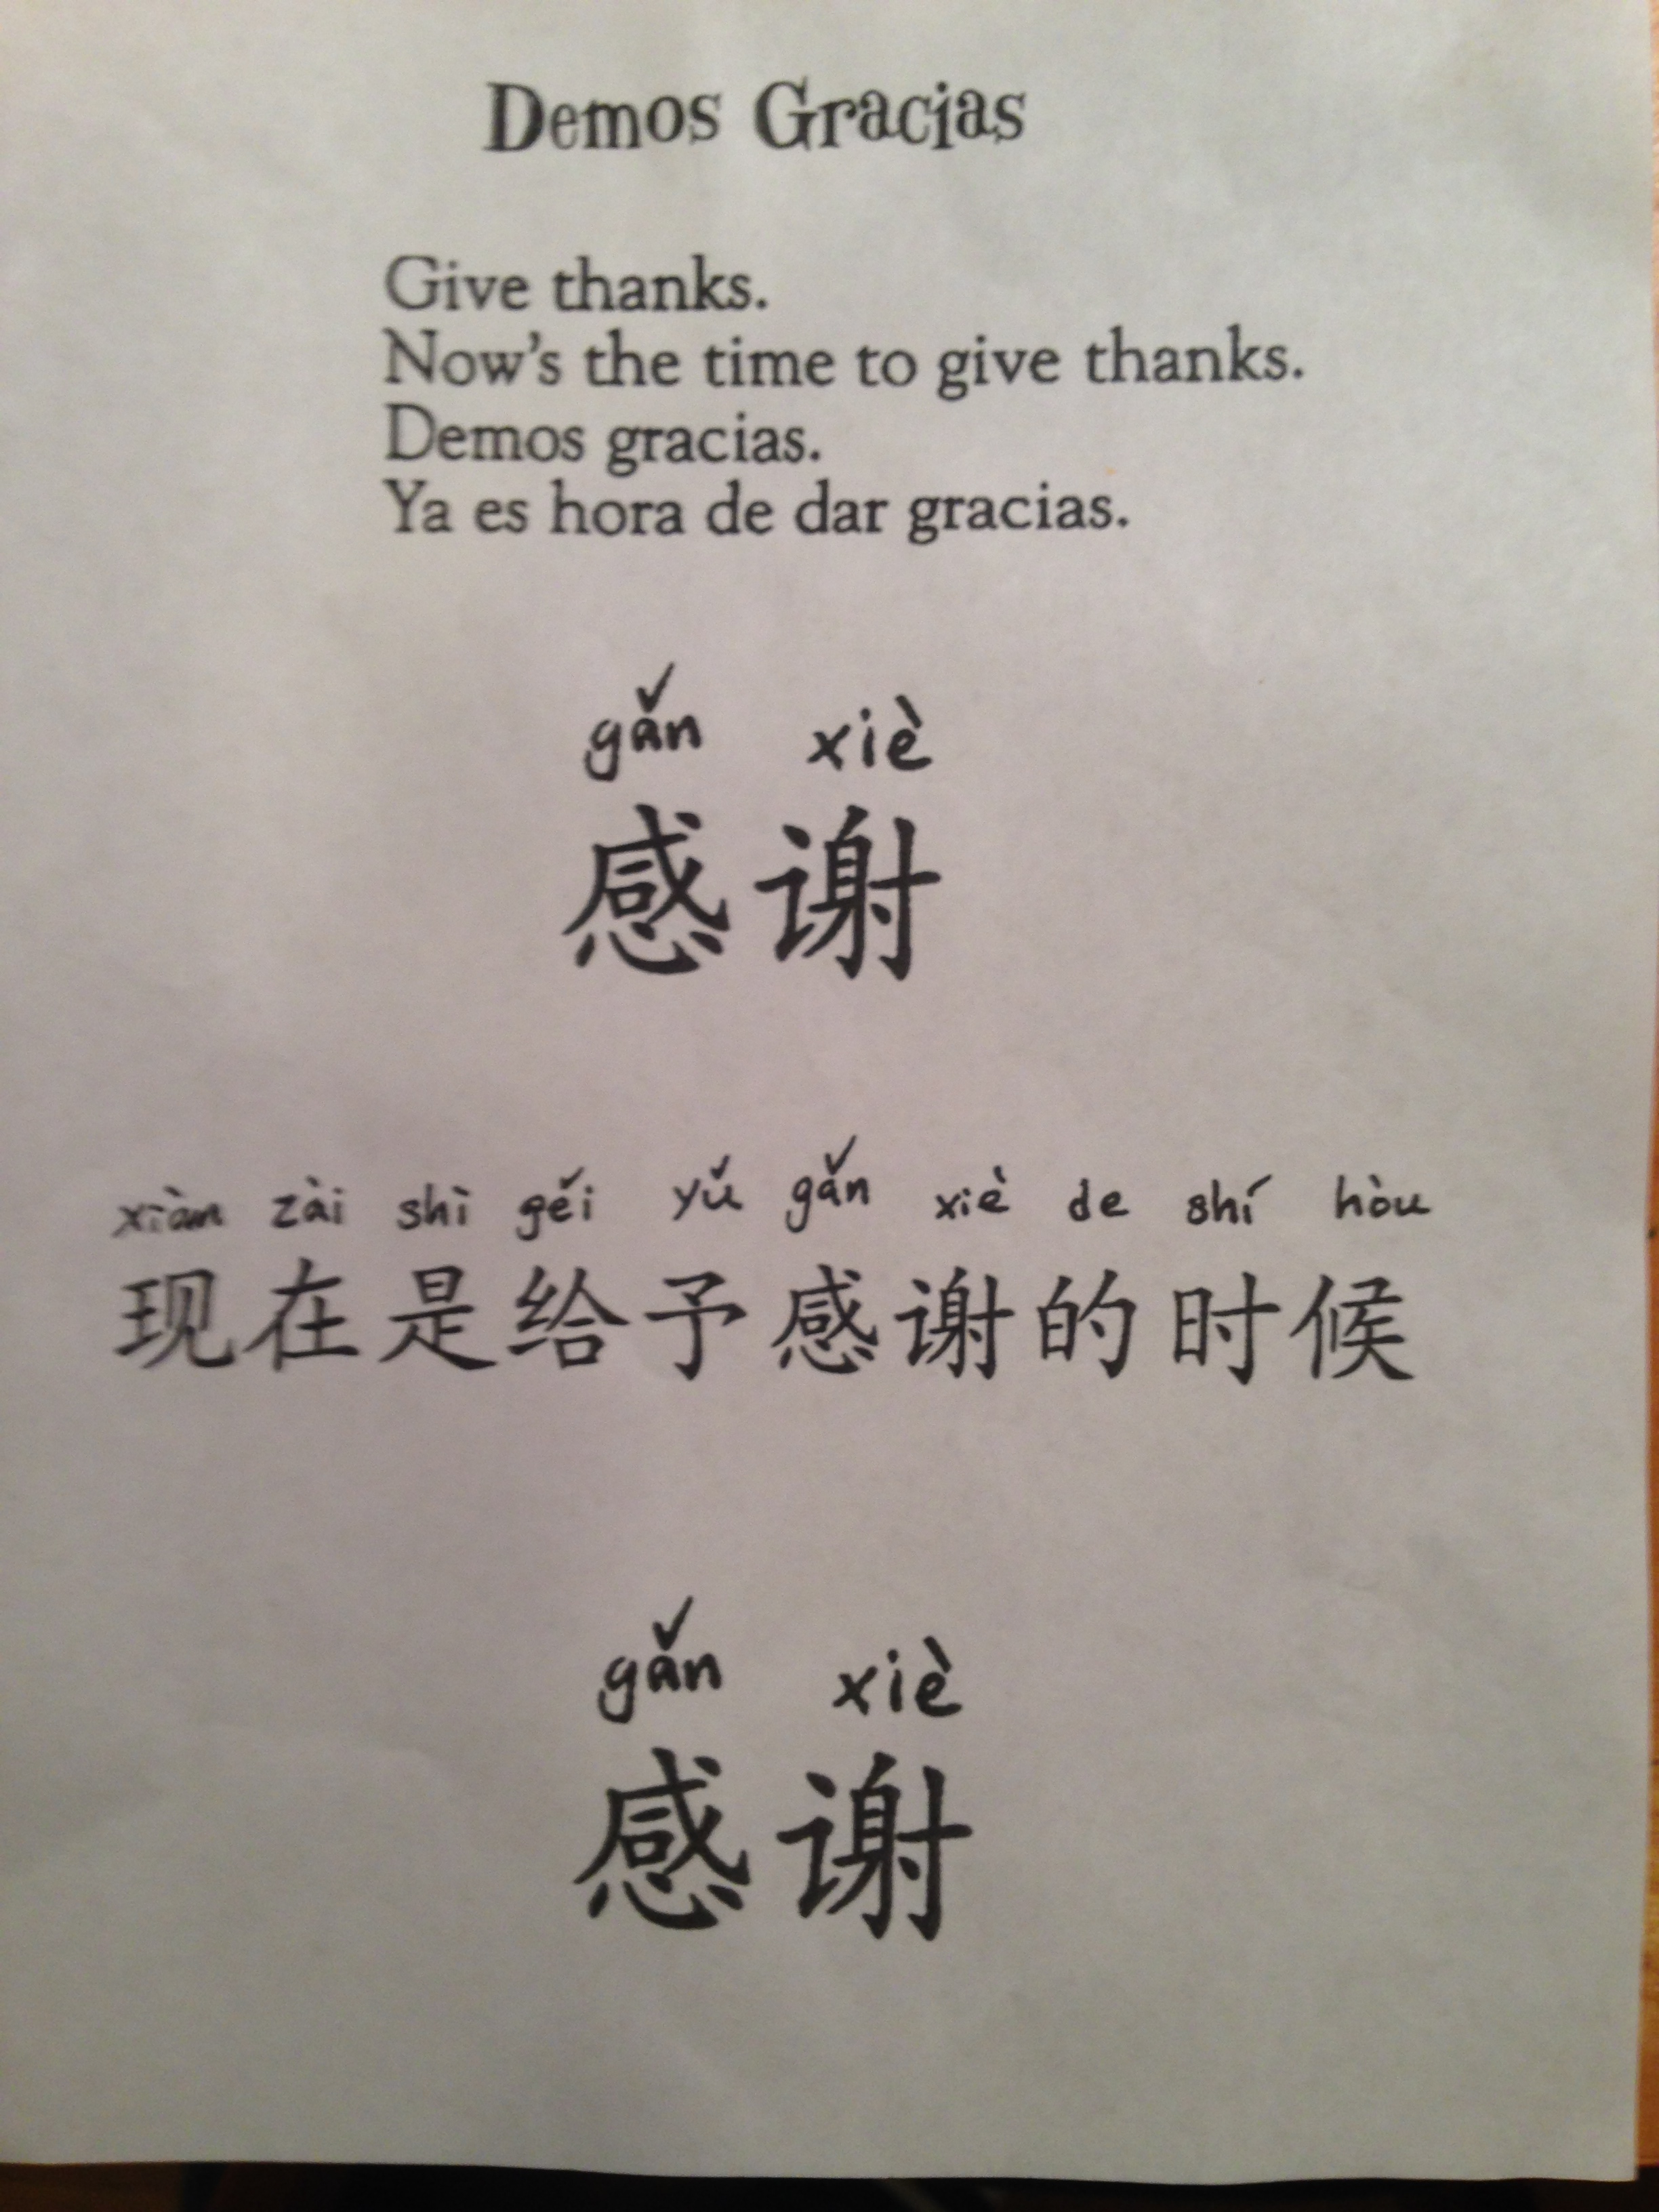 Demos Gracias
Give thanks.
Now's the time to give thanks.
Demos gracias.
Ya es hora de dar gracias.
gǎn xiè
感谢
xiàn zài shì gěi yǔ gǎn xiè de shí hòu
现在是给予感谢的时候
gǎn xiè
感谢